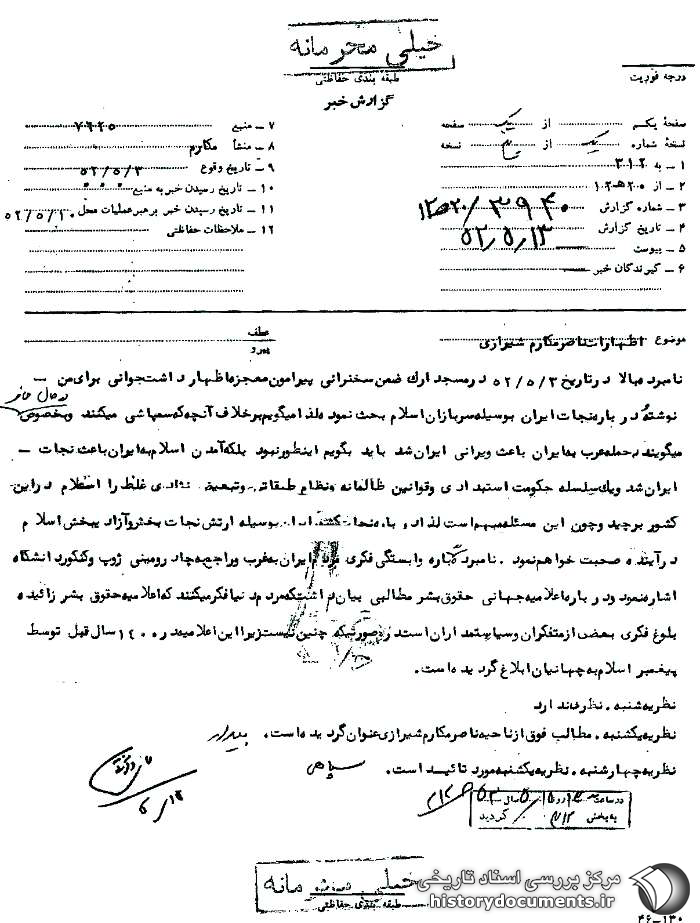 خیلی محرمانه
طبقه بندی حفاظتی
گزارش خبر
درجه فوریت
صفحهٔ یکم از یک صفحه
نسخهٔ شماره یک از نسخه
۱ - به ۳۱۲
۲ - از ۲۰ هـ ۱۲
۳ - شماره گزارش ۳۹۴۰ / ۲۰ هـ ۱۲
۴ - تاریخ گزارش ۵۲/۵/۱۳
۵ - پیوست
۶ - گیرندگان خبر
۷ - منبع ۷۶۲۵
۸ - منشأ مکارم
۹ - تاریخ وقوع ۵۲/۵/۳
۱۰ - تاریخ رسیدن خبر به منبع
۱۱ - تاریخ رسیدن خبر به رهبر عملیات محل ۵۲/۵/۱۰
۱۲ - ملاحظات حفاظتی
موضوع اظهارات ناصر مکارم شیرازی
عطف
پیرو
نامبرده بالا در تاریخ ۵۲/۵/۳ در مسجد ارک ضمن سخنرانی پیرامون معجزه اظهار داشت جوانی برای من -
در حال حاضر
نوشته در باره نجات ایران بوسیله سربازان اسلام بحث نمود لذا میگویم برخلاف آنچه که سمپاشی میکنند و بخصوص
میگویند حمله عرب به ایران باعث ویرانی ایران شد باید بگویم اینطور نبود بلکه آمدن اسلام به ایران باعث نجات -
ایران شد و یک سلسله حکومت استبدادی و قوانین ظالمانه و نظام طبقاتی و تبعیض نژادی غلط را اسلام در این
کشور برچید و چون این مسئله مهم است لذا در باره نجات کشور ایران بوسیله ارتش نجات بخش و آزادیبخش اسلام
در آینده صحبت خواهم نمود. نامبرده در باره وابستگی فکری مردم ایران به غرب و راجع به چادر و مینی ژوپ و کنکور دانشگاه
اشاره نمود و در باره اعلامیه جهانی حقوق بشر مطالبی بیان داشت که مردم دنیا فکر میکنند که اعلامیه حقوق بشر زائیده
بلوغ فکری بعضی از متفکران و سیاستمداران است در صورتیکه چنین نیست زیرا این اعلامیه در ۱۴۰۰ سال قبل توسط
پیغمبر اسلام به جهانیان ابلاغ گردیده است.
نظریه شنبه. نظری ندارد
نظریه یکشنبه. مطالب فوق از ناحیه ناصر مکارم شیرازی عنوان گردیده است. بیدار
نظریه چهارشنبه. نظریه یکشنبه مورد تائید است. سپاهی
در ساعت روز سال
به بخش ۳۱۲ گردید
خیلی محرمانه
طبقه بندی حفاظتی
مرکز بررسی اسناد تاریخی
historydocuments.ir
۴۶-۱۳۰